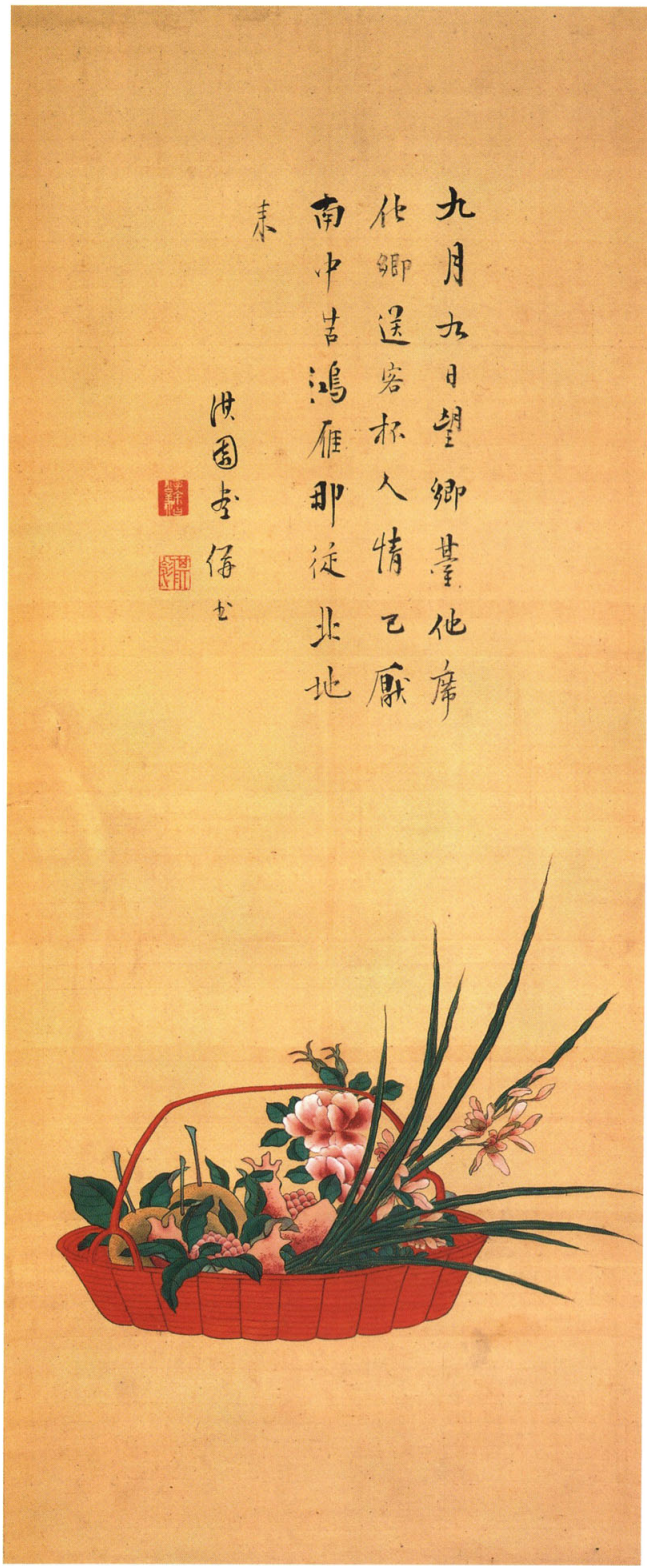 九月九日望鄉臺他席
他鄉送客杯人情已厭
南中苦鴻雁那從北地
来
淇園畫併書